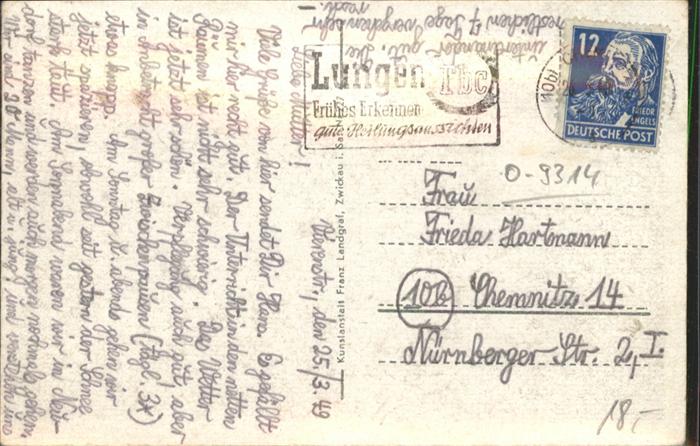 Bärenstr., den 25./3. 49
Liebe Mutter!
Viele Grüße von hier sendet Dir Hans. Es gefällt
mir hier recht gut. Der Unterricht in den netten
Räumen ist nicht sehr schwierig. Das Wetter
ist jetzt sehr schön. Verpflegung auch gut aber
in Anbetracht großer Zwischenpausen (tägl. 3x)
etwas knapp. Am Sonntag u. abends gehen wir
jetzt spazieren, obwohl seit gestern der Schnee
stark taut. Am Sonnabend waren wir in
dort tanzen und werden auch morgen nochmals gehen.
Wir sind 28 Mann,
untereinander gut. Die
restlichen 7 Tage vergehen
noch
Kunstanstalt Franz Landgraf, Zwickau i. Sa.
Lungen Tbc
Frühes Erkennen
gute Heilungsaussichten
10b)
12
FRIEDR.
ENGELS
DEUTSCHE POST
0-9314
Frau
Frieda Hartmann
10b Chemnitz 14
Nürnberger Str. 2, I.
18,-